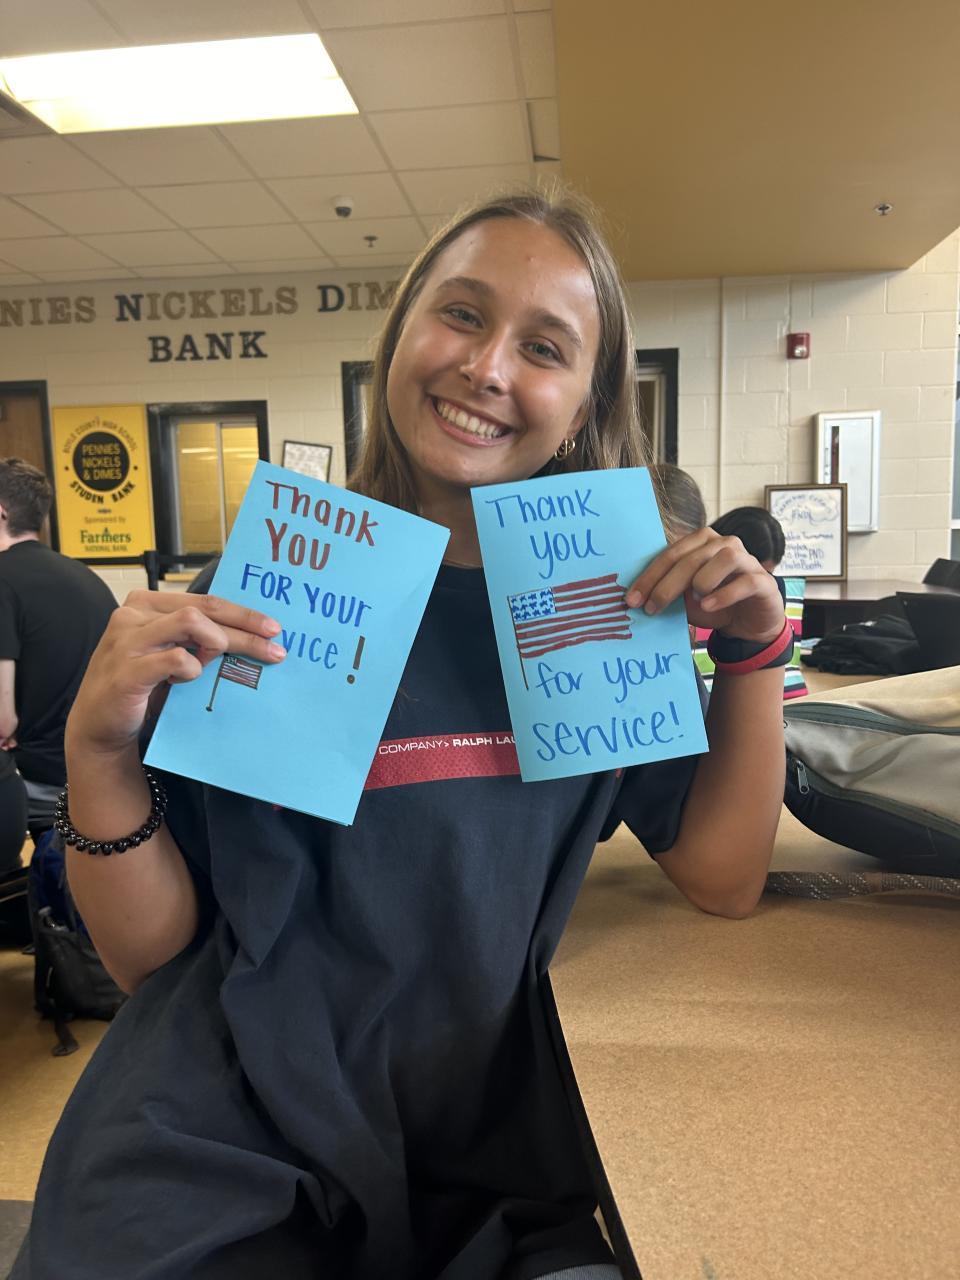 NIES NICKELS DIM
BANK
BOYLE COUNTY HIGH SCHOOL
PENNIES
NICKELS
& DIMES
STUDENT BANK
Sponsored by
Farmers
NATIONAL BANK
Thank
You
FOR YOUR
VICE!
Thank
you
for your
service!
COMPANY> RALPH LAU